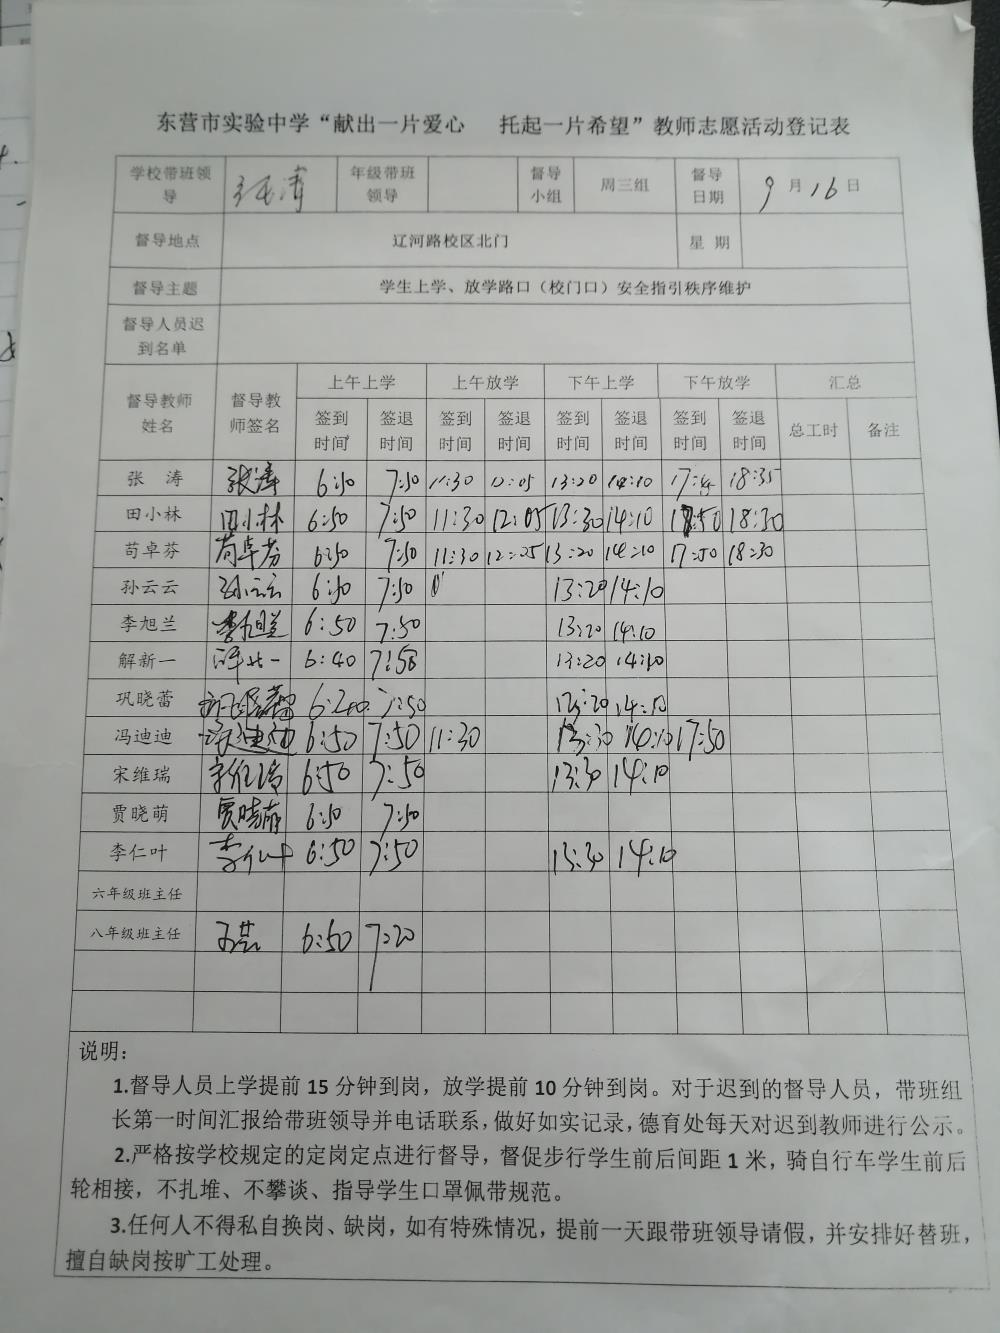 东营市实验中学“献出一片爱心 托起一片希望”教师志愿活动登记表
学校带班领导 张涛 年级带班领导 督导小组 周三组 督导日期 9月16日
督导地点 辽河路校区北门 星 期
督导主题 学生上学、放学路口（校门口）安全指引秩序维护
督导人员迟到名单
督导教师姓名 督导教师签名 上午上学 上午放学 下午上学 下午放学 汇总
签到时间 签退时间 签到时间 签退时间 签到时间 签退时间 签到时间 签退时间 总工时 备注
张 涛 张涛 6:50 7:50 11:30 12:05 13:20 14:10 18:35
田小林 田小林 6:50 7:50 11:30 12:05 13:30 14:10 17:50 18:30
苟卓芬 苟卓芬 6:50 7:50 11:30 12:05 13:20 14:10 17:50 18:30
孙云云 孙云云 6:50 7:50 13:20 14:10
李旭兰 李旭兰 6:50 7:50 13:20 14:10
解新一 解新一 6:40 7:50 13:20 14:10
巩晓蕾 巩晓蕾 6:40 7:50 14:10
冯迪迪 冯迪迪 6:50 7:50 11:30 13:30 14:10 17:50
宋维瑞 宋维瑞 6:50 7:50 13:30 14:10
贾晓萌 贾晓萌 6:50 7:50
李仁叶 李仁叶 6:50 7:50 13:30 14:10
六年级班主任
八年级班主任 6:50 7:20
说明：
1.督导人员上学提前 15 分钟到岗，放学提前 10 分钟到岗。对于迟到的督导人员，带班组
长第一时间汇报给带班领导并电话联系，做好如实记录，德育处每天对迟到教师进行公示。
2.严格按学校规定的定岗定点进行督导，督促步行学生前后间距 1 米，骑自行车学生前后
轮相接，不扎堆、不攀谈、指导学生口罩佩带规范。
3.任何人不得私自换岗、缺岗，如有特殊情况，提前一天跟带班领导请假，并安排好替班，
擅自缺岗按旷工处理。